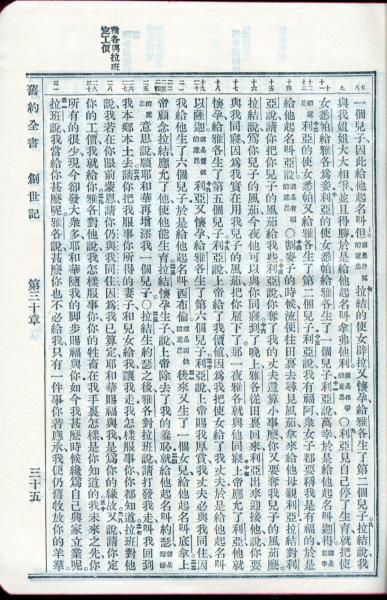 一個兒子因此給他起名叫但就是伸冤的意思拉結的使女辟拉又懷孕給雅各生了第二個兒子拉結說我
與我姐姐大大相爭並且得勝於是給他起名叫拿弗他利就是相爭的意思○利亞見自己停了生育就把使
女悉帕給雅各爲妾利亞的使女悉帕給雅各生了一個兒子利亞說萬幸於是給他起名叫迦得就是萬幸的意思
利亞的使女悉帕又給雅各生了第二個兒子利亞說我有福阿衆女子都要稱我是有福的於是
給他起名叫亞設就是有福的意思○割麥子的時候流便往田裏去尋見風茄拿來給他母親利亞拉結對利
亞說請你把你兒子的風茄給我些利亞說你奪了我的丈夫還算小事麼你又要奪我兒子的風茄麼
拉結說爲你兒子的風茄今夜他可以與你同寢到了晚上雅各從田裏回來利亞出來迎接他說你要
與我同寢因爲我實在用我兒子的風茄把你雇下了那一夜雅各就與他同寢上帝應允了利亞他就
懷孕給雅各生了第五個兒子利亞說上帝給了我價值因爲我把使女給了我丈夫於是給他起名叫
以薩迦就是價值的意思利亞又懷孕給雅各生了第六個兒子利亞說上帝賜我厚賞我丈夫必與我同住因
我給他生了六個兒子於是給他起名叫西布倫就是同住的意思後來又生了一個女兒給他起名叫底拿上
帝顧念拉結應允了他使他能生育拉結懷孕生子說上帝除去了我的羞恥就給他起名叫約瑟就是增添
的意思意思說願耶和華再增添我一個兒子○拉結生約瑟之後雅各對拉班說請打發我走叫我回到
我本鄉本土去請你把我服事你所得的妻子和兒女給我讓我走我怎樣服事你你都知道拉班對他
說我若在你眼前蒙恩請你仍與我同住因爲我已算定耶和華賜福與我是爲你的緣故又說請你定
你的工價我就給你雅各對他說我怎樣服事你你的牲畜在我手裏怎樣是你知道的我未來之先你
所有的很少現今卻發大衆多耶和華隨我的脚步賜福與你如今我甚麼時候纔爲自己興家立業呢
拉班說我當給你甚麼呢雅各說甚麼你也不必給我只有一件事你若應承我便仍舊牧放你的羊羣
雅各與拉班
定工價
舊約全書 創世記 第三十章 三十五